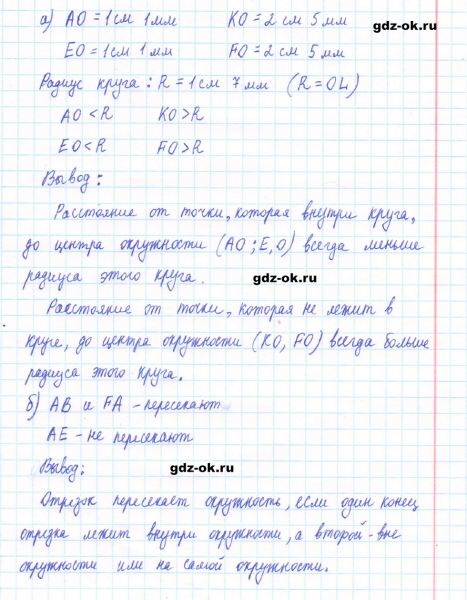 а) АО = 1 см 1 мм КО = 2 см 5 мм
gdz-ok.ru
ЕО = 1 см 1 мм FО = 2 см 5 мм
Радиус круга: R = 1 см 7 мм (R = OL)
АО < R КО > R
ЕО < R FО > R
Вывод:
Расстояние от точки, которая внутри круга,
до центра окружности (АО; Е,О) всегда меньше
радиуса этого круга.
gdz-ok.ru
Расстояние от точки, которая не лежит в
круге, до центра окружности (КО, FО) всегда больше
радиуса этого круга.
б) АВ и FА - пересекают
АЕ - не пересекают
Вывод:
gdz-ok.ru
Отрезок пересекает окружность, если один конец
отрезка лежит внутри окружности, а второй - вне
окружности или на самой окружности.